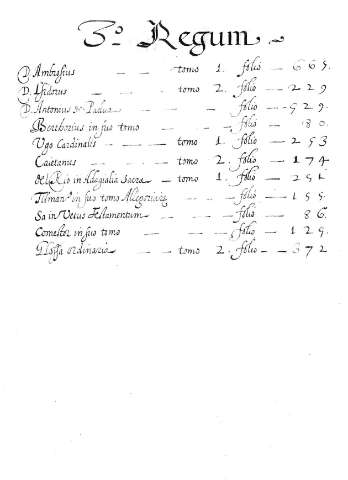 3º Regum
D. Ambrosius tomo 1. folio 665.
D. Isidorus tomo 2. folio 229
D. Antonius de Padua folio 929.
Berchorius in suo tomo folio 80.
Ugo Cardinalis tomo 1. folio 253
Caietanus tomo 2. folio 174
del Rio in Adagialia Sacra tomo 1. folio 251
in suo tomo Allegoriarũ folio 155
Sa in Vetus Testamentum folio 86.
Comestor in suo tomo folio 129.
Glossa ordinaria tomo 2. folio 372